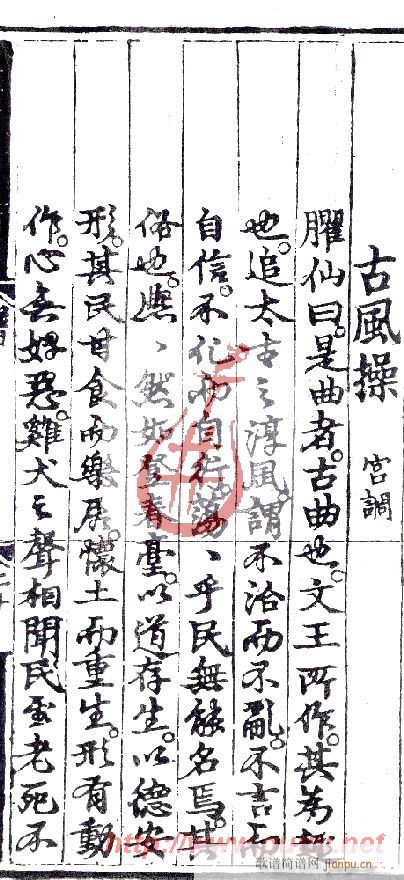 古風操 宮調
臞仙曰。是曲者。古曲也。文王所作。其為趣
也。追太古之淳風。謂不治而不亂。不言而
自信。不化而自行。蕩、乎民無能名焉。其
俗也。熙、然如登春臺。以道存生。以德安
形。其民甘食而樂居。懷土而重生。形有動
作。心無好惡。雞犬之聲相聞民至老死不
歌谱简谱网
jianpu.cn